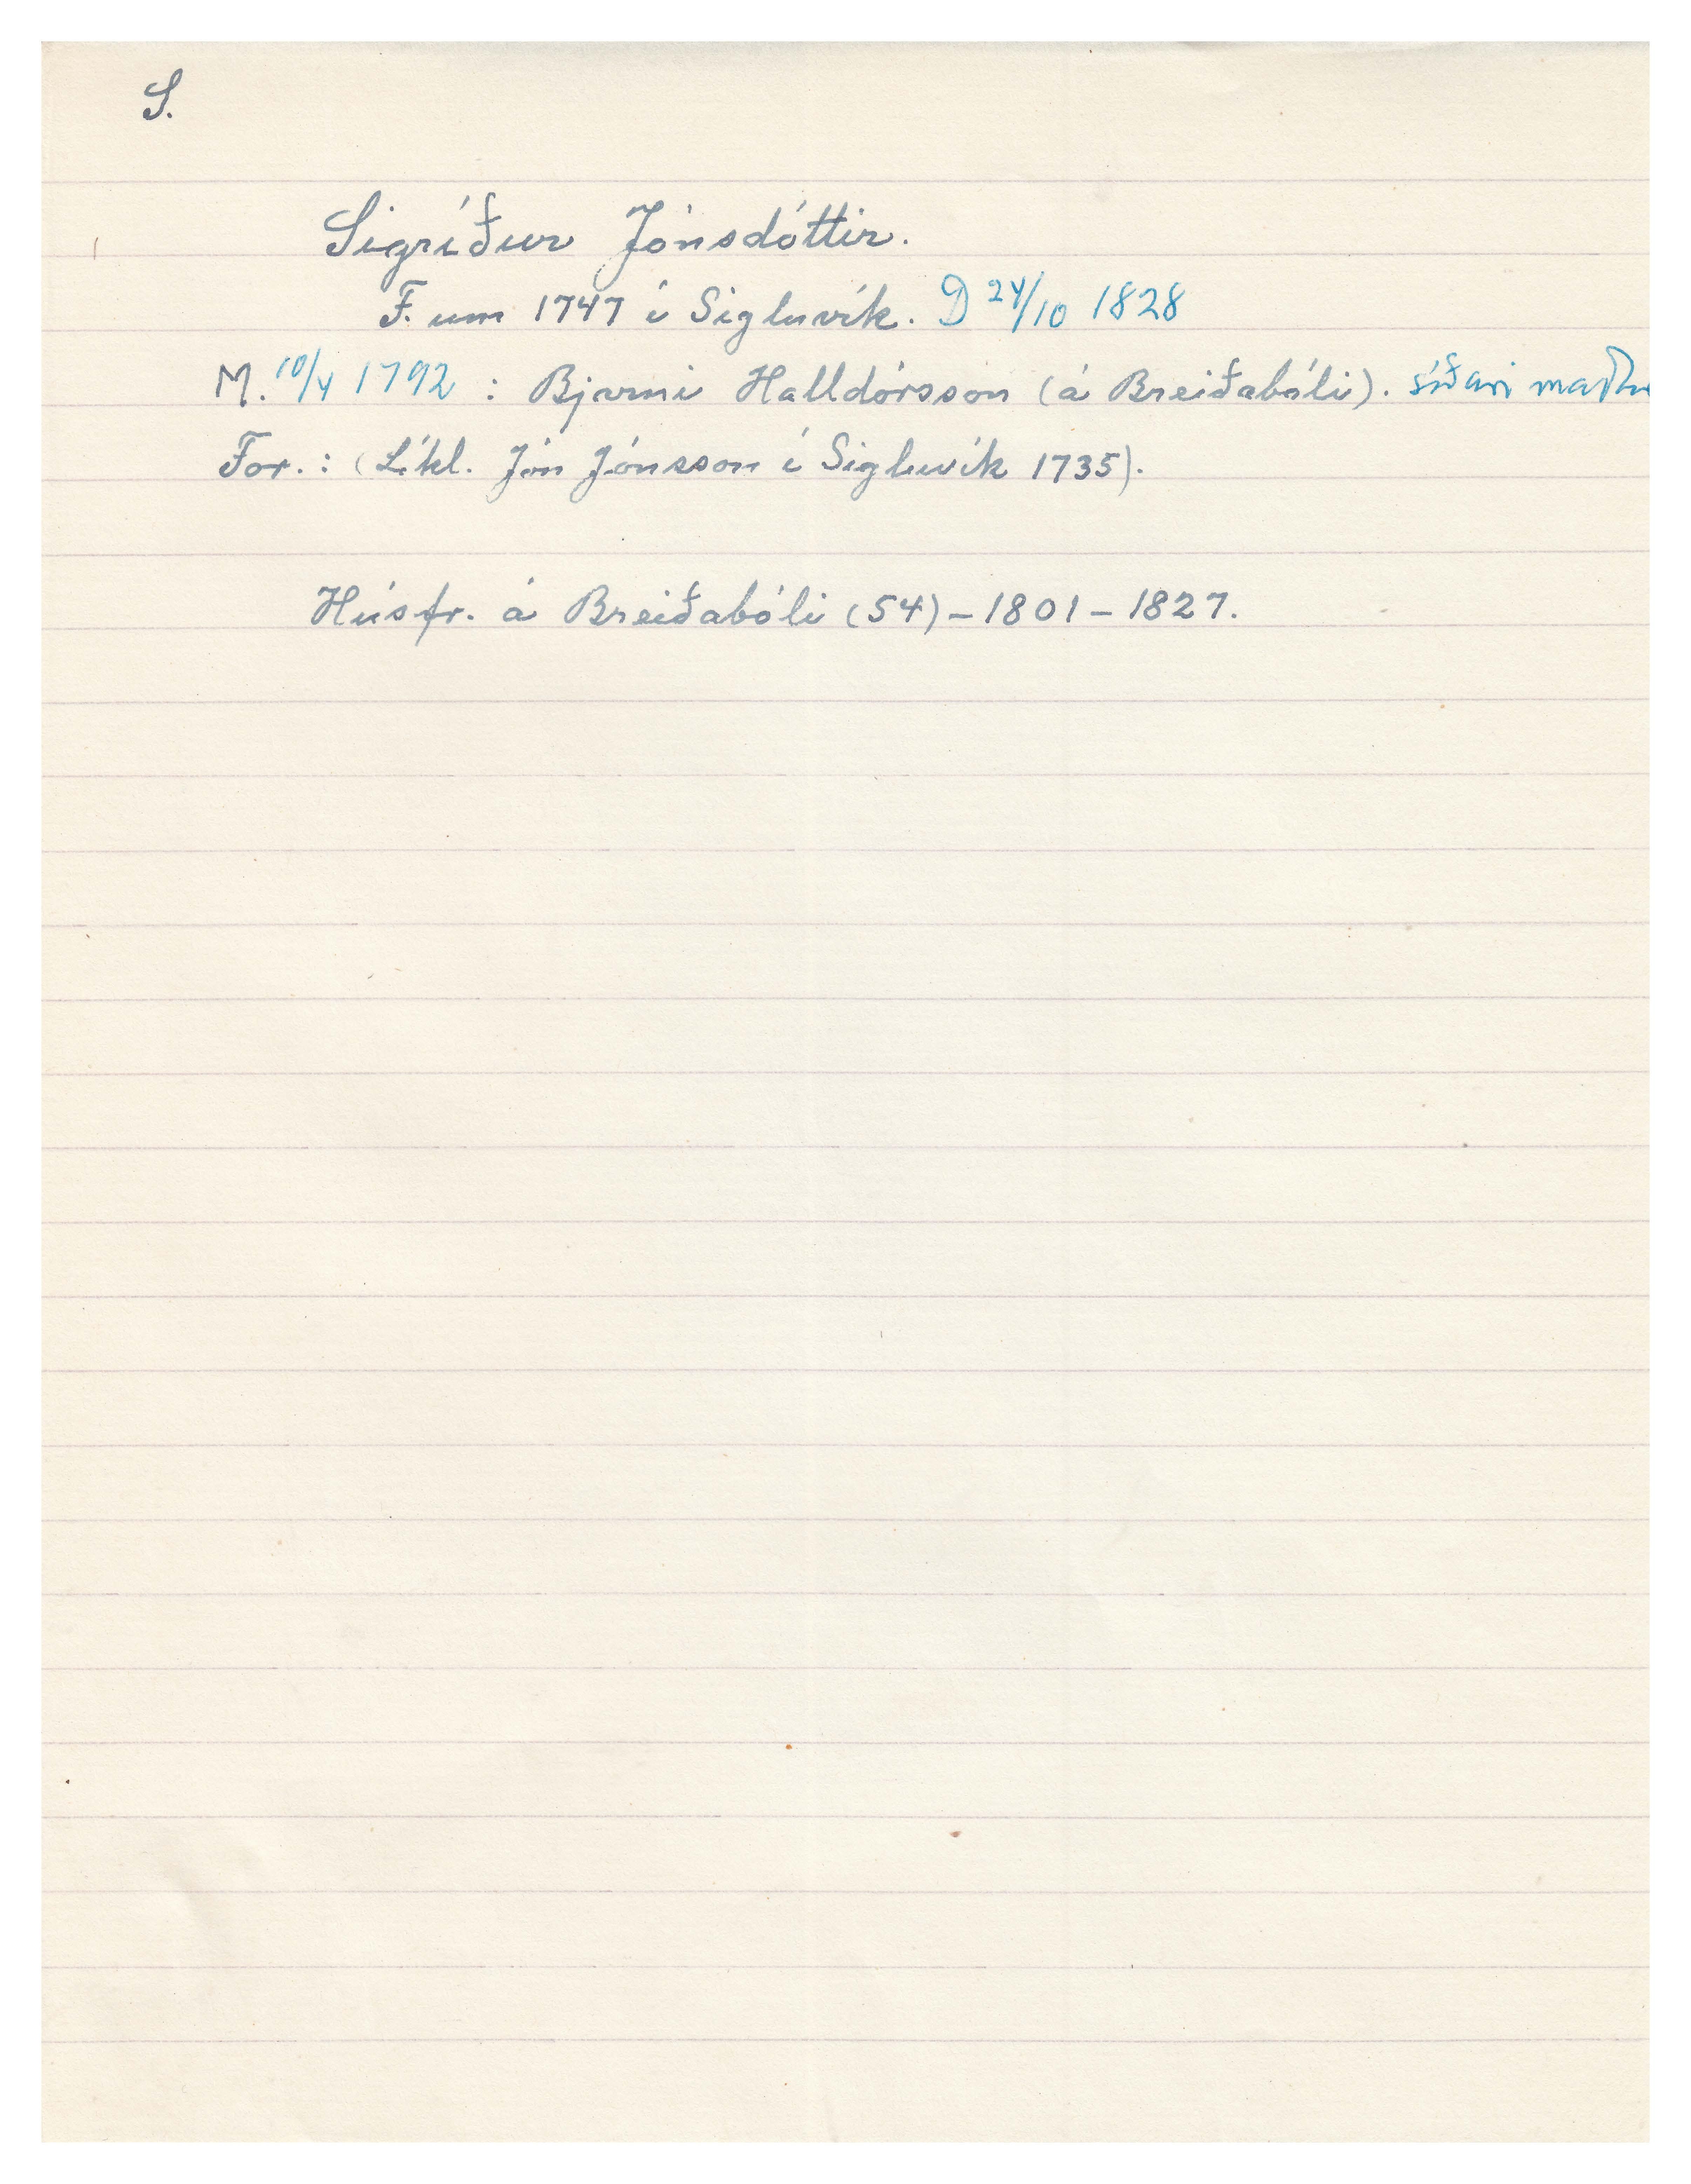 S.
Sigríður Jónsdóttir.
F. um 1747 í Sigluvík. D 24/10 1828
M. 10/4 1792 : Bjarni Halldórsson (á Breiðabóli). síðari maður
For. : (Líkl. Jón Jónsson í Sigluvík 1735).
Húsfr. á Breiðabóli (54) – 1801 – 1827.